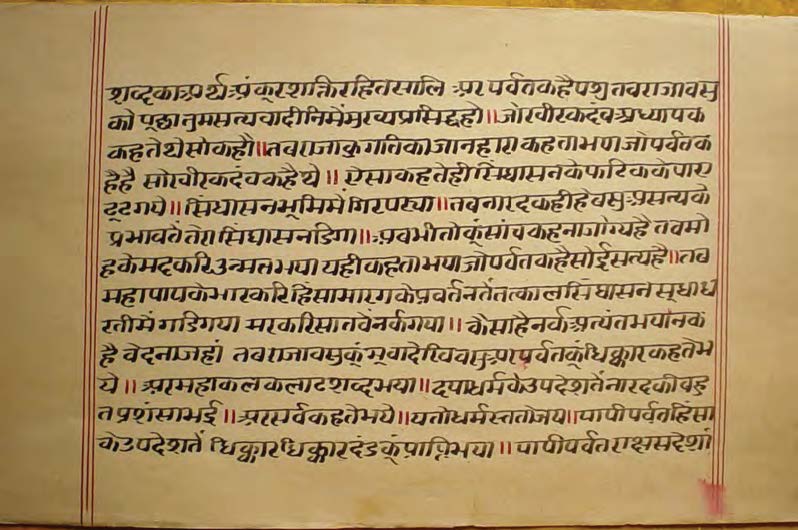 शब्दका अर्थ अंकूरशक्तिरहितसालि अर पर्वतकहैपशु तवराजावसु
को पूछा तुमसत्यवादीनिमैंमुरव्यप्रसिद्धहो॥ जोरवीरकदंवअध्यापक
कहतेथेसोकहौ॥ तवराजाकुगतिकाजानहारा कहताभया जोपर्वतक
हैहै सोरवीरकदंवकहैथे॥ ऐसाकहतेही सिंघासनकेफटिककेपाए
टूटगये॥ सिंघासनभूमिमैंगिरपर्‍या॥ तवनारदकहीहेवसुअसत्यके
प्रभावतैतेरा सिंघासनडिगा॥ अवभीतोकूंसांचकहनाजोग्यहै तवमो
हकेमदकरिउन्मत्तभया यहीकहताभयाजोपर्वतकहैसोईसत्यहै॥ तव
महापापकेभारकरिहिंसामारगकेप्रवर्तनतैतत्कालसिंघासनसूधाध
रतीमैंगडिगया मरकरिसातवैंनर्कगया॥ कैसाहैनर्कअत्यंतभयानक
है वेदनाजहां तवराजावसुकूंमूवादेषिवसुअरपर्वतकूंधिक्कारकहतेभ
ये॥ अरमहाकलकलाटशब्दभया॥ दयाधर्मकेउपदेशतैंनारदकीवहु
तप्रशंसाभई॥ अरसर्वकहतेभये॥ यतोधर्मस्ततोजय॥ पापीपर्वतहिंसा
केउपदेशतैं धिक्कारधिक्कारदंडकूंप्राप्तिभया॥ पापीपर्वतराक्षसदेशां